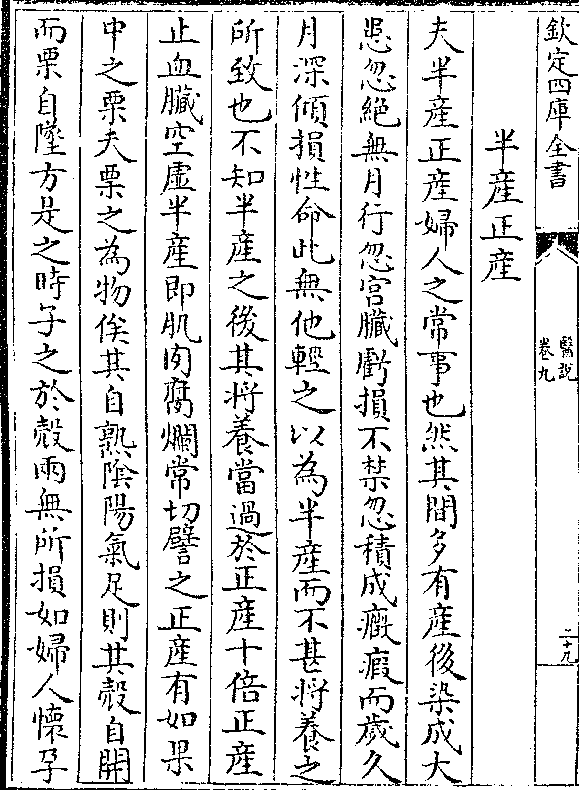 欽定四庫全書
醫說
卷九
二十九
半産正産
夫半産正産婦人之常事也然其間多有産後染成大
患忽絶無月行忽宫臟虧損不禁忽積成癥瘕而歲久
月深傾損性命此無他輕之以為半産而不甚將養之
所致也不知半産之後其將養當過於正産十倍正産
止血臟空虚半産即肌肉腐爛常切譬之正産有如果
中之栗夫栗之為物俟其自熟隂陽氣足則其殻自開
而栗自墜方是之時子之於殻兩無所損如婦人懷孕